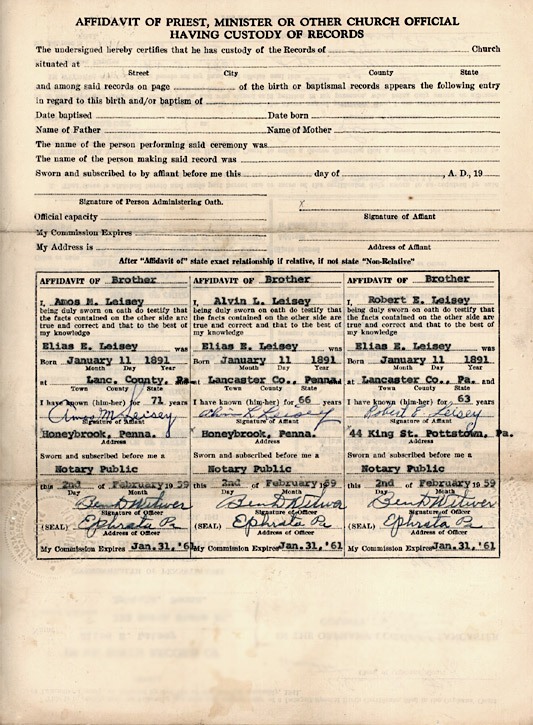 AFFIDAVIT OF PRIEST, MINISTER OR OTHER CHURCH OFFICIAL
HAVING CUSTODY OF RECORDS
The undersigned hereby certifies that he has custody of the Records of Church
situated at
Street City County State
and among said records on page of the birth or baptismal records appears the following entry
in regard to this birth and/or baptism of
Date baptised Date born
Name of Father Name of Mother
The name of the person performing said ceremony was
The name of the person making said record was
Sworn and subscribed to by affiant before me this day of , A. D., 19
Signature of Person Administering Oath. x
Official capacity Signature of Affiant
My Commission Expires
My Address is Address of Affiant
After "Affidavit of" state exact relationship if relative, if not state "Non-Relative"
AFFIDAVIT OF Brother
I, Amos M. Leisey
being duly sworn on oath do testify that
the facts contained on the other side are
true and correct and that to the best of
my knowledge
Elias E. Leisey was
Born January 11 1891
Month Day Year
at Lanc. County, Pa
Town County State
I have known (him-her) for 71 years
Amos M Leisey
Signature of Affiant
Honeybrook, Penna.
Address
Sworn and subscribed before me a
Notary Public
this 2nd of February 19 59
Day Month
Ben D Witwer
Signature of Officer
(SEAL) Ephrata Pa
Address of Officer
My Commission Expires Jan.31,'61
AFFIDAVIT OF Brother
I, Alvin L. Leisey
being duly sworn on oath do testify that
the facts contained on the other side are
true and correct and that to the best of
my knowledge
Elias E. Leisey was
Born January 11 1891
Month Day Year
at Lancaster Co., Penna.
Town County State
I have known (him-her) for 66 years
Alvin L Leisey
Signature of Affiant
Honeybrook, Penna.
Address
Sworn and subscribed before me a
Notary Public
this 2nd of February 19 59
Day Month
Ben D Witwer
Signature of Officer
(SEAL) Ephrata Pa
Address of Officer
My Commission Expires Jan.31,'61
AFFIDAVIT OF Brother
I, Robert E. Leisey
being duly sworn on oath do testify that
the facts contained on the other side are
true and correct and that to the best of
my knowledge
Elias E. Leisey was
Born January 11 1891
Month Day Year
at Lancaster Co., Pa. and
Town County State
I have known (him-her) for 63 years
Robert E. Leisey
Signature of Affiant
44 King St. Pottstown, Pa.
Address
Sworn and subscribed before me a
Notary Public
this 2nd of February 19 59
Day Month
Ben D Witwer
Signature of Officer
(SEAL) Ephrata Pa
Address of Officer
My Commission Expires Jan.31,'61